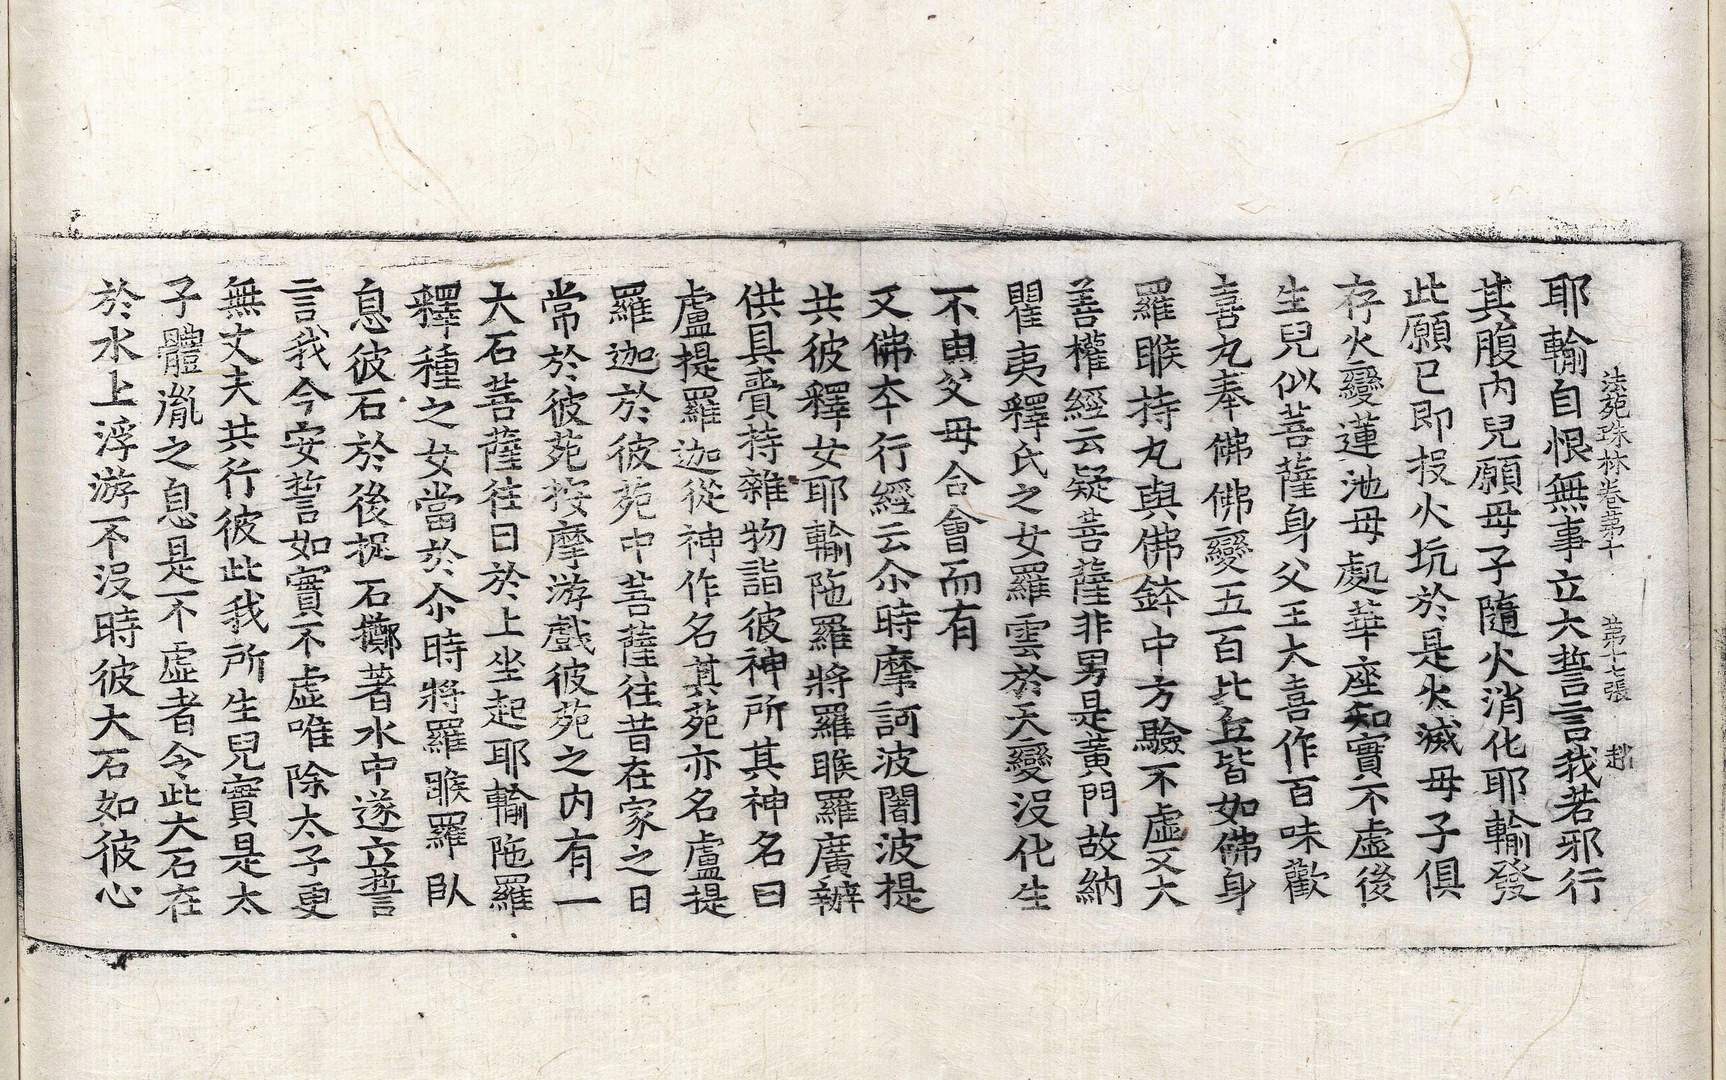 法苑珠林卷第十　第十七張　趙
耶輸自恨無事立大誓言我若邪行
其腹內兒願母子隨火消化耶輸發
此願已即投火坑於是火滅母子俱
存火變蓮池母處華座知實不虛後
生兒似菩薩身父王大喜作百味歡
喜丸奉佛佛變五百比丘皆如佛身
羅睺持丸與佛鉢中方驗不虛又大
善權經云疑菩薩非男是黃門故納
瞿夷釋氏之女羅雲於天變沒化生
不由父母合會而有
又佛本行經云尒時摩訶波闍波提
共彼釋女耶輸陁羅將羅睺羅廣辦
供具賷持雜物詣彼神所其神名曰
盧提羅迦從神作名其苑亦名盧提
羅迦於彼苑中菩薩往昔在家之日
常於彼苑按摩游戲彼苑之內有一
大石菩薩往日於上坐起耶輸陁羅
釋種之女當於尒時將羅睺羅臥
息彼石於後捉石擲著水中遂立誓
言我今安誓如實不虛唯除太子更
無丈夫共行彼此我所生兒實是太
子體胤之息是不虛者令此大石在
於水上浮游不沒時彼大石如彼心